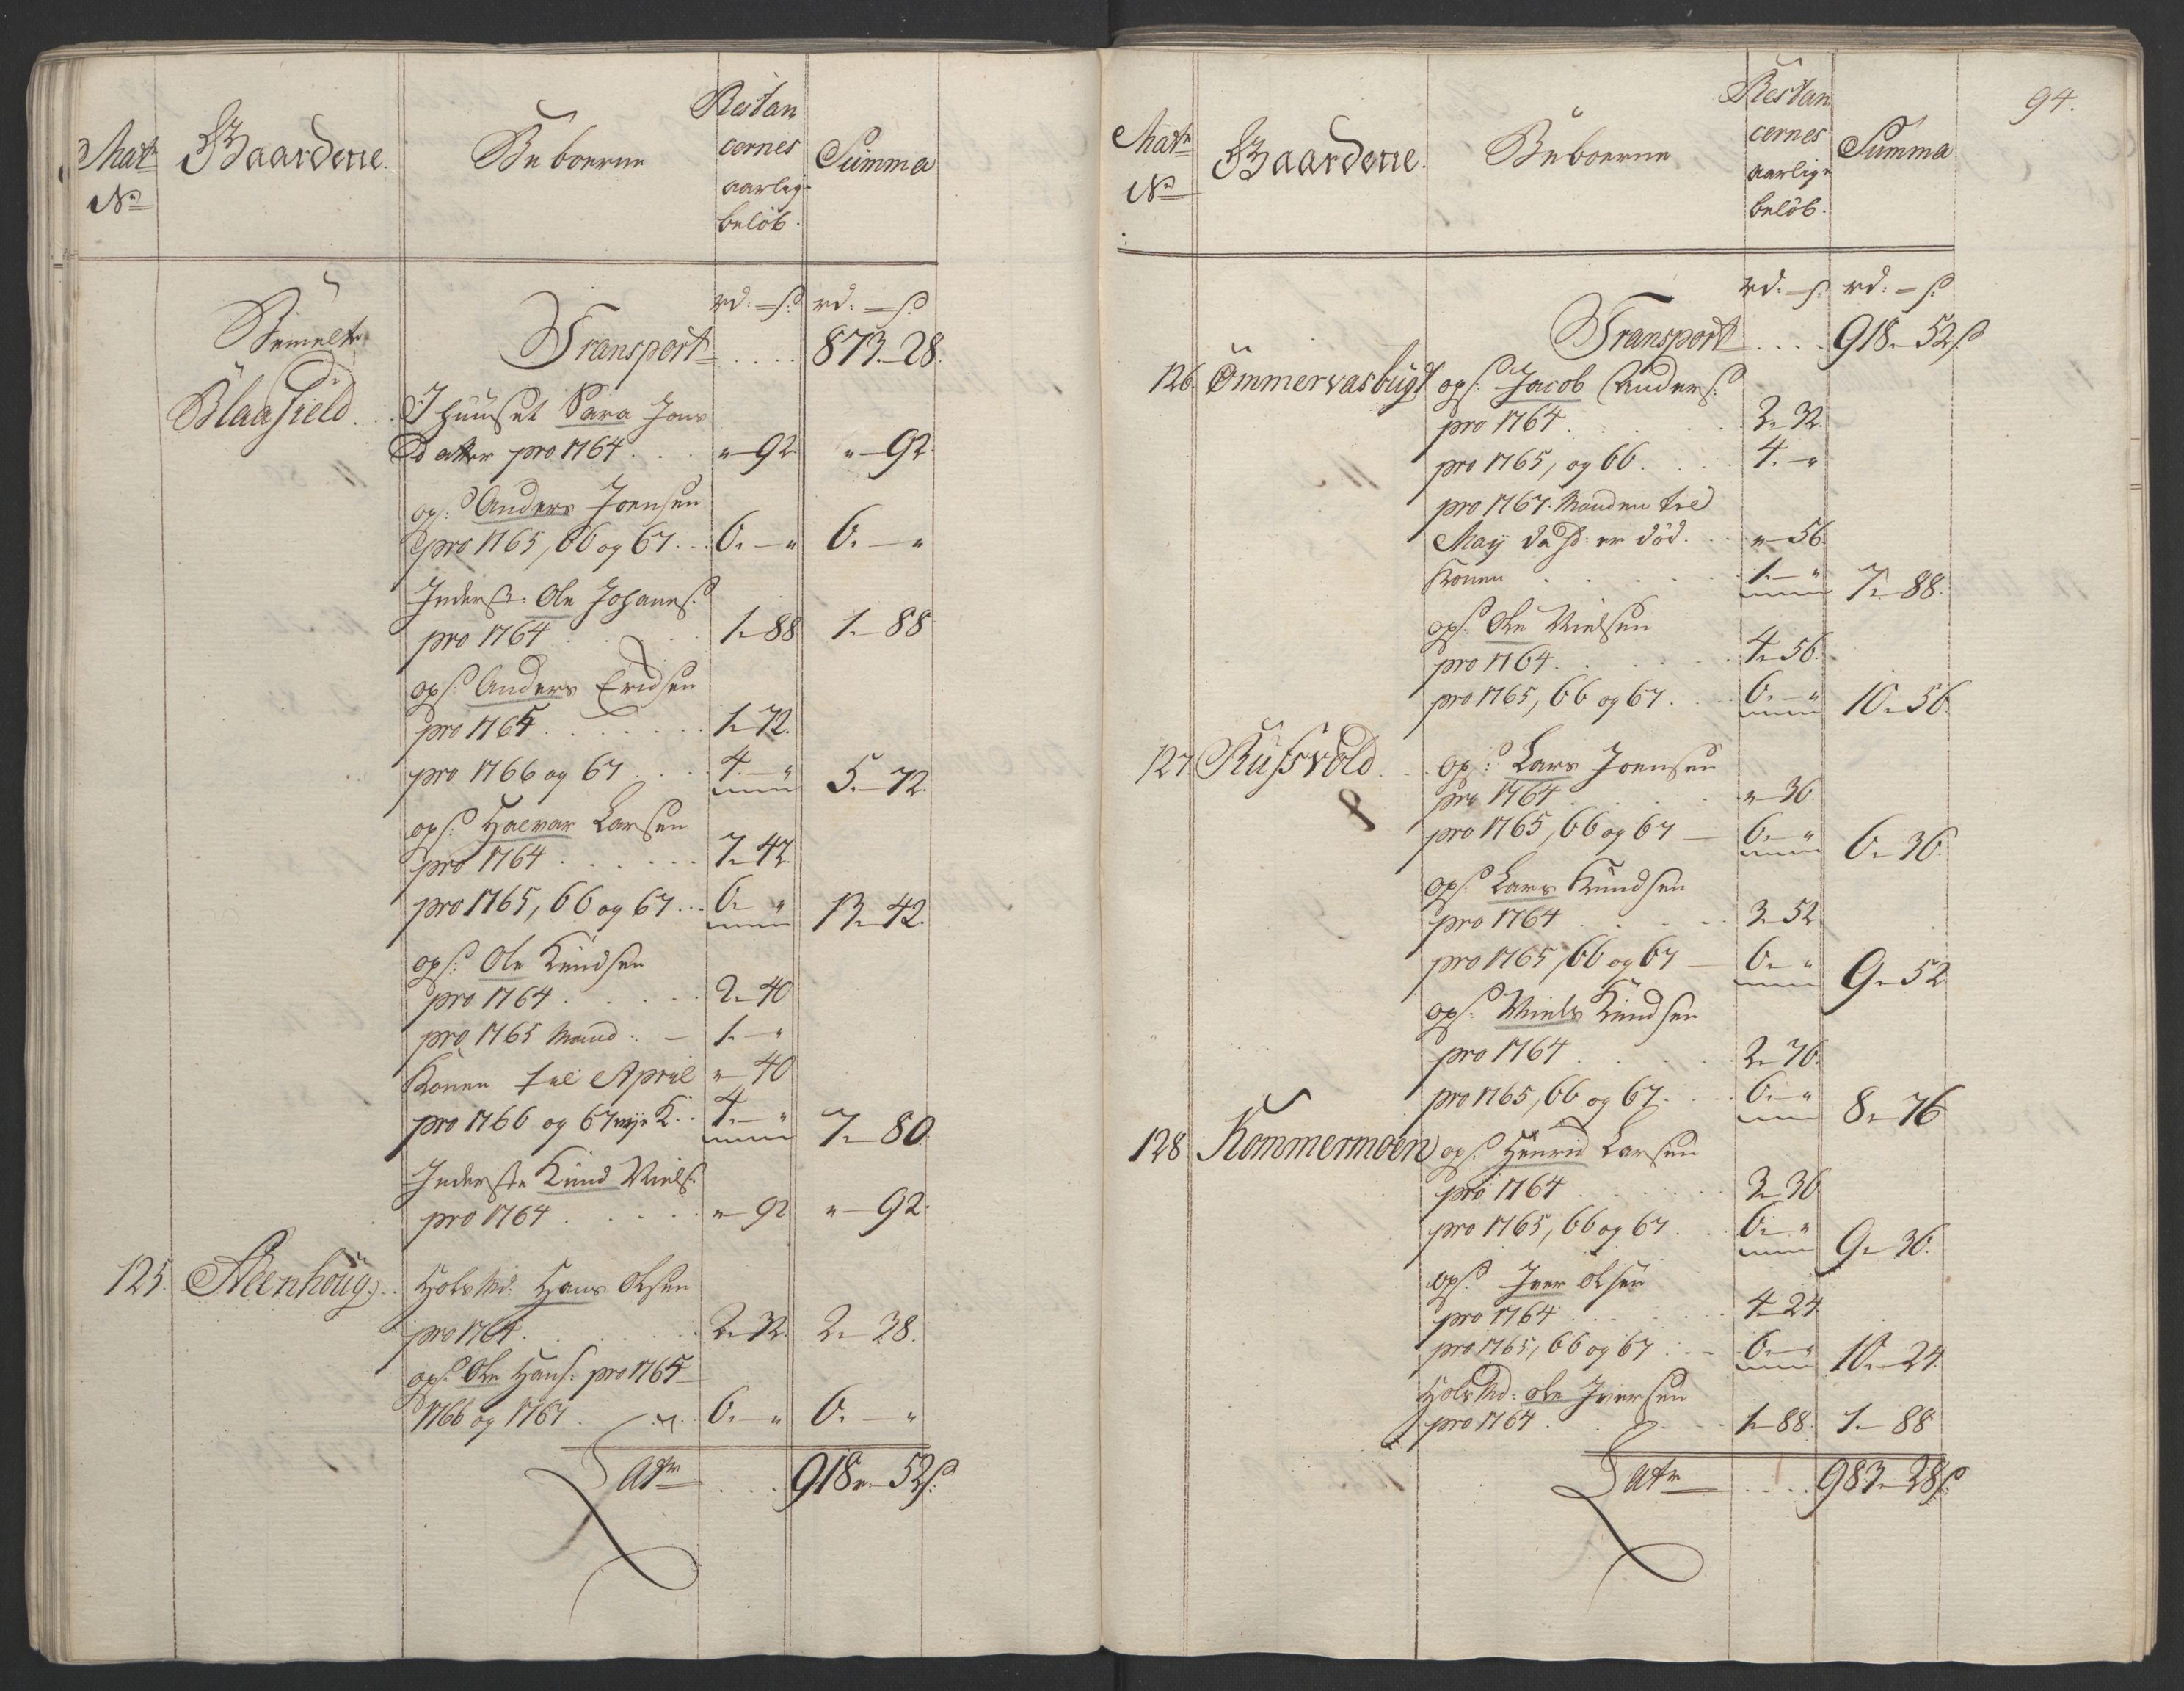 Matr
No
Gaardene.
Beboerne
Restan
cernes
aarlige
beløb.
Summa
rd: – s: rd: – s:
Bemelte
Transport . . . . 873. – 28.
Blaafield . . I huuset Sara Jons
Datter pro 1764 . . . " – 92 " – 92.
ops: Anders Joensen
pro 1765, 66 og 67 . . . 6. – " 6. – "
Inderst. Ole Johans:
pro 1764 . . . . . 1. – 88 1. – 88
ops: Anders Ericksen
pro 1765 . . . . . . . 1. – 72.
pro 1766 og 67 . . . 4. – " 5. – 72.
ops: Halvar Larsen
pro 1764 . . . . . . 7. – 42.
pro 1765, 66 og 67 . . . 6. – " 13. – 42.
ops: Ole Knudsen
pro 1764 . . . . . 2. – 40
pro 1765 Mand . – 1. – "
Konen til April " – 40
pro 1766 og 67 nye K. . . 4. – " 7. – 80.
Inderste Knud Niels:
pro 1764 . . . . . " – 92 " – 92.
125. Steenhoug . . . Holsmd: Hans Olsen
pro 1764 . . . . . . . 2. – 32. 2. – 38.
ops: Ole Hans: pro 1765
1766 og 1767 . . . 6. – " 6. – "
Latr . . . . 918. – 52 s:
94.
Matr
No
Gaardene.
Beboerne
Restan
cernes
aarlige
beløb.
Summa
rd: – s: rd: – s:
Transport . . . . 918. – 52 s:
126. Ömmervasbugt ops: Jacob Anders:
pro 1764 . . . . . . 2. – 32.
pro 1765, og 66 . . . . 4. – "
pro 1767. Manden til
Maij da hd: er död . . . " – 56.
Konen . . . . . . 1. – " 7. – 88.
ops: Ole Nielsen
pro 1764 . . . . . . 4. – 56.
pro 1765, 66 og 67 . . . 6. – " 10. – 56.
127. Russvold . . . ops: Lars Joensen
pro 1764 . . . . . " – 36.
pro 1765, 66 og 67 – 6. – " 6. – 36.
ops: Lars Knudsen
pro 1764 . . . . . 3. – 52.
pro 1765, 66 og 67 – 6. – " 9. – 52
ops: Niels Knudsen
pro 1764 . . . . . 2. – 76.
pro 1765, 66 og 67 . . . 6. – " 8. – 76
128. Kommermoen ops: Henrick Larsen
pro 1764 . . . . . . 3. – 36
pro 1765, 66 og 67 . . . 6. – " 9. – 36.
ops: Iver Olsen
pro 1764 . . . . . . 4. – 24
pro 1765, 66 og 67 . . – 6. – " 10. – 24.
Holsmd: Ole Iversen
pro 1764 . . . . . 1. – 88. 1. – 88
Latr . . . . 983. – 28 s: